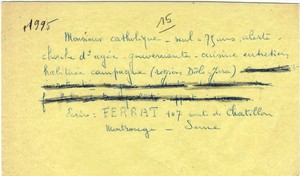 1995 15
Monsieur catholique - seul - 75 ans, alerte
cherche dame agée - gouvernante - cuisine entretien
habituée campagne (région Dôle-Jura)
Ecrire: FERRAT 107 route de Chatillon
Montrouge - Seine